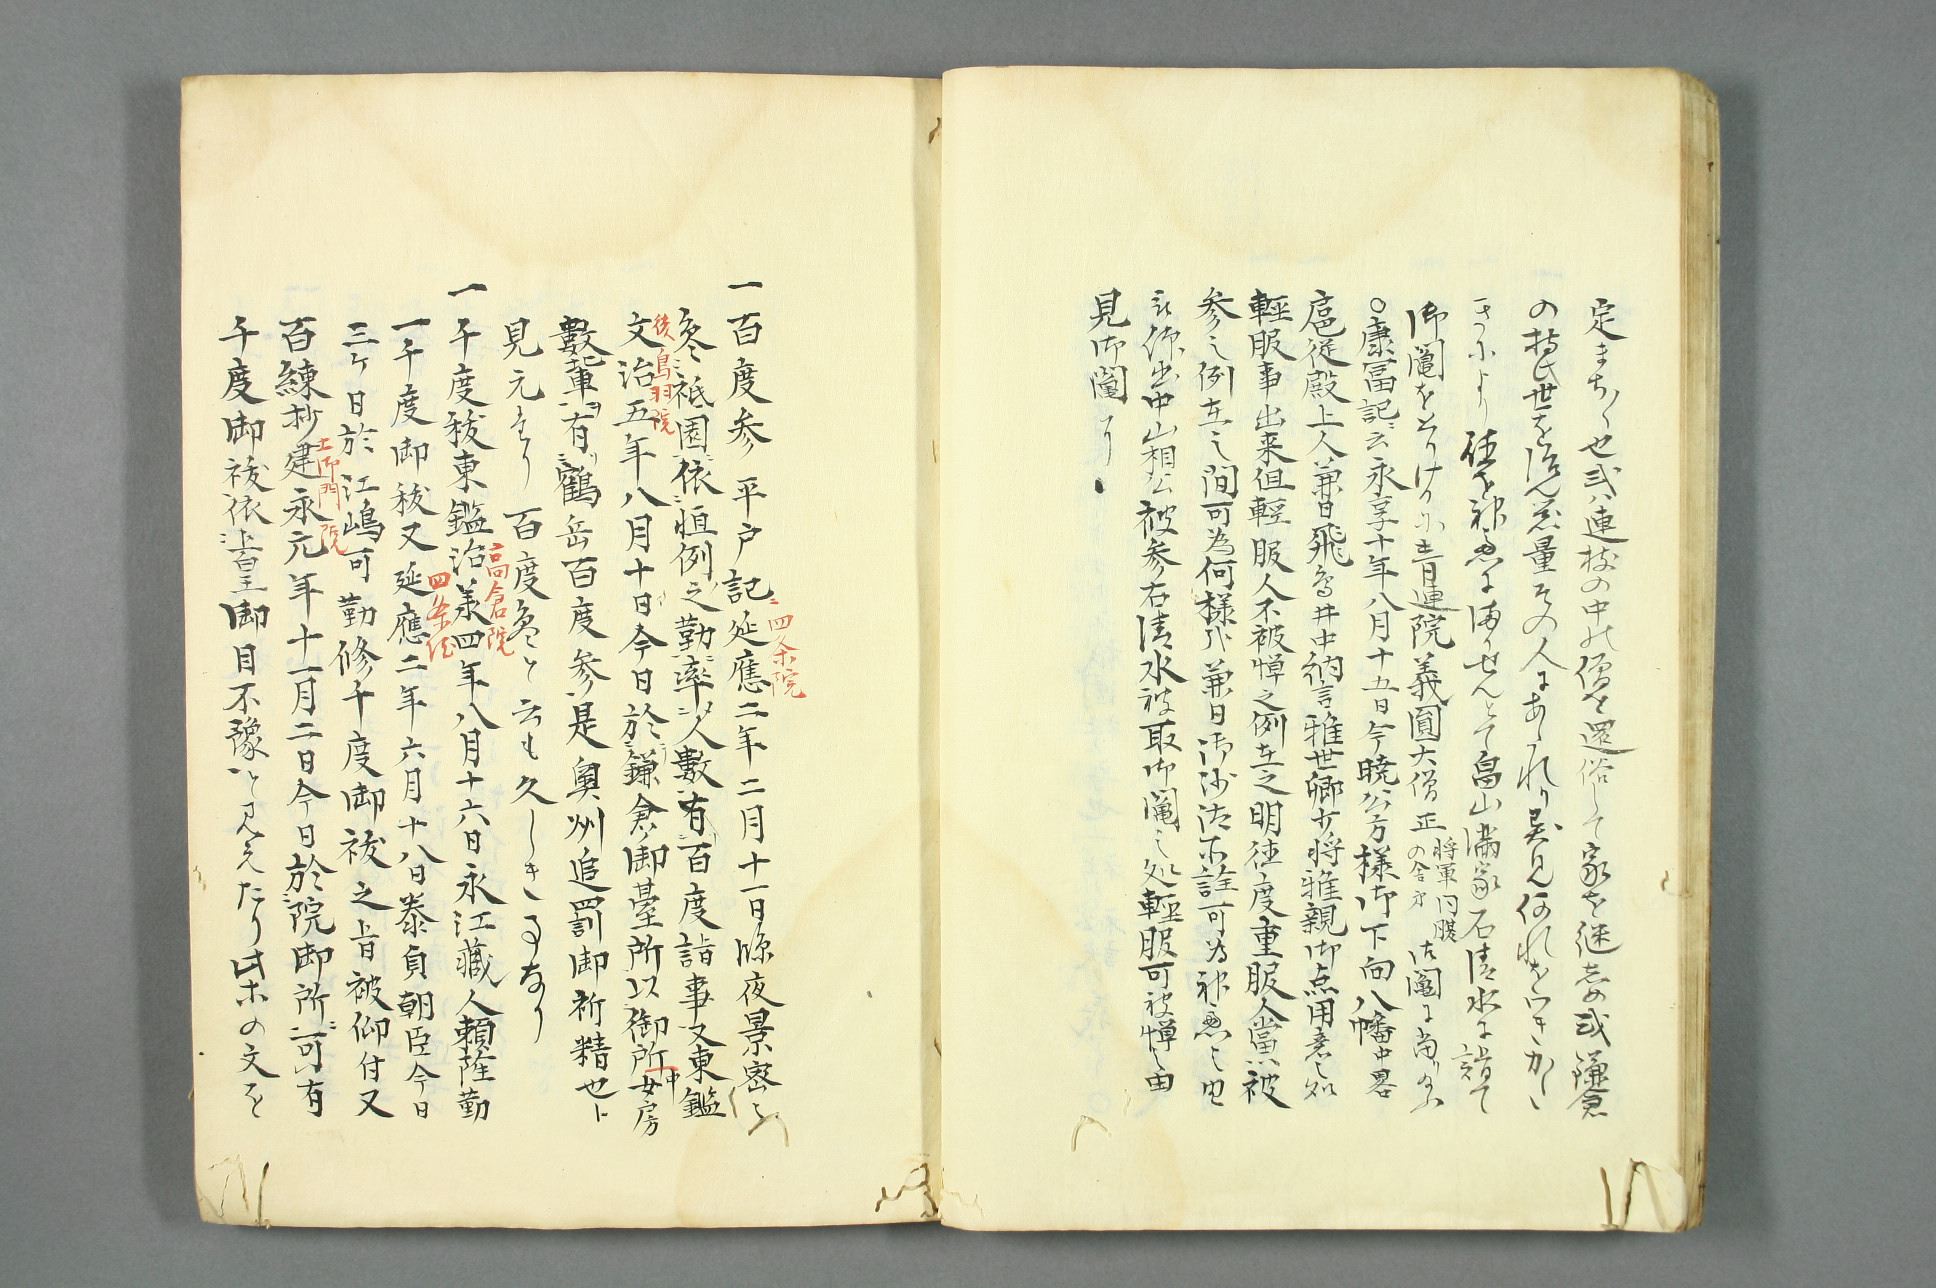 定まちく也或ハ連枝の中の僧を還俗して家を継しめ或鎌倉
の持氏世を治ん器量その人にあられり異見何れもつきかし
きにより神慮にまかせんとて畠山満家石清水に詣て
御鬮をとりけるに青蓮院義圓大僧正将軍同腹の舎弟御鬮に
○康冨記云永享十年八月十五日今暁公方様御下向八幡中畧
扈従殿上人兼日飛鳥井中納言雅世卿少将雅親御点用意之処
軽服事出来但軽服人不被憚之例在之明徳度重服人當被
参之例在之間可為何様哉兼日御沙汰所詮可為神慮之由
中山相公被参石清水被取御鬮之処軽服可被憚之由
見御鬮了
一百度参 平戸記延應二年二月十一日臨夜景密々
四条院
参祇園依恒例之勤率人數有百度詣事又東鑑
後鳥羽院
文治五年八月十日今日於鎌倉御臺所以御所中女房
數輩有鶴岳百度参是奥州追罰御祈精也ト
見元たり 百度参と云も久しき事なり
一千度祓東鑑治承四年八月十六日永江蔵人頼隆勤
高倉院
一千度御祓又延應二年六月十八日泰貞朝臣今日
四条院
三ケ日於江嶋可勤修千度御祓之旨被仰付又
百練抄建永元年十一月二日今日於院御所可有
土御門院
千度御祓依上皇御目不豫と見えたり此等の文を